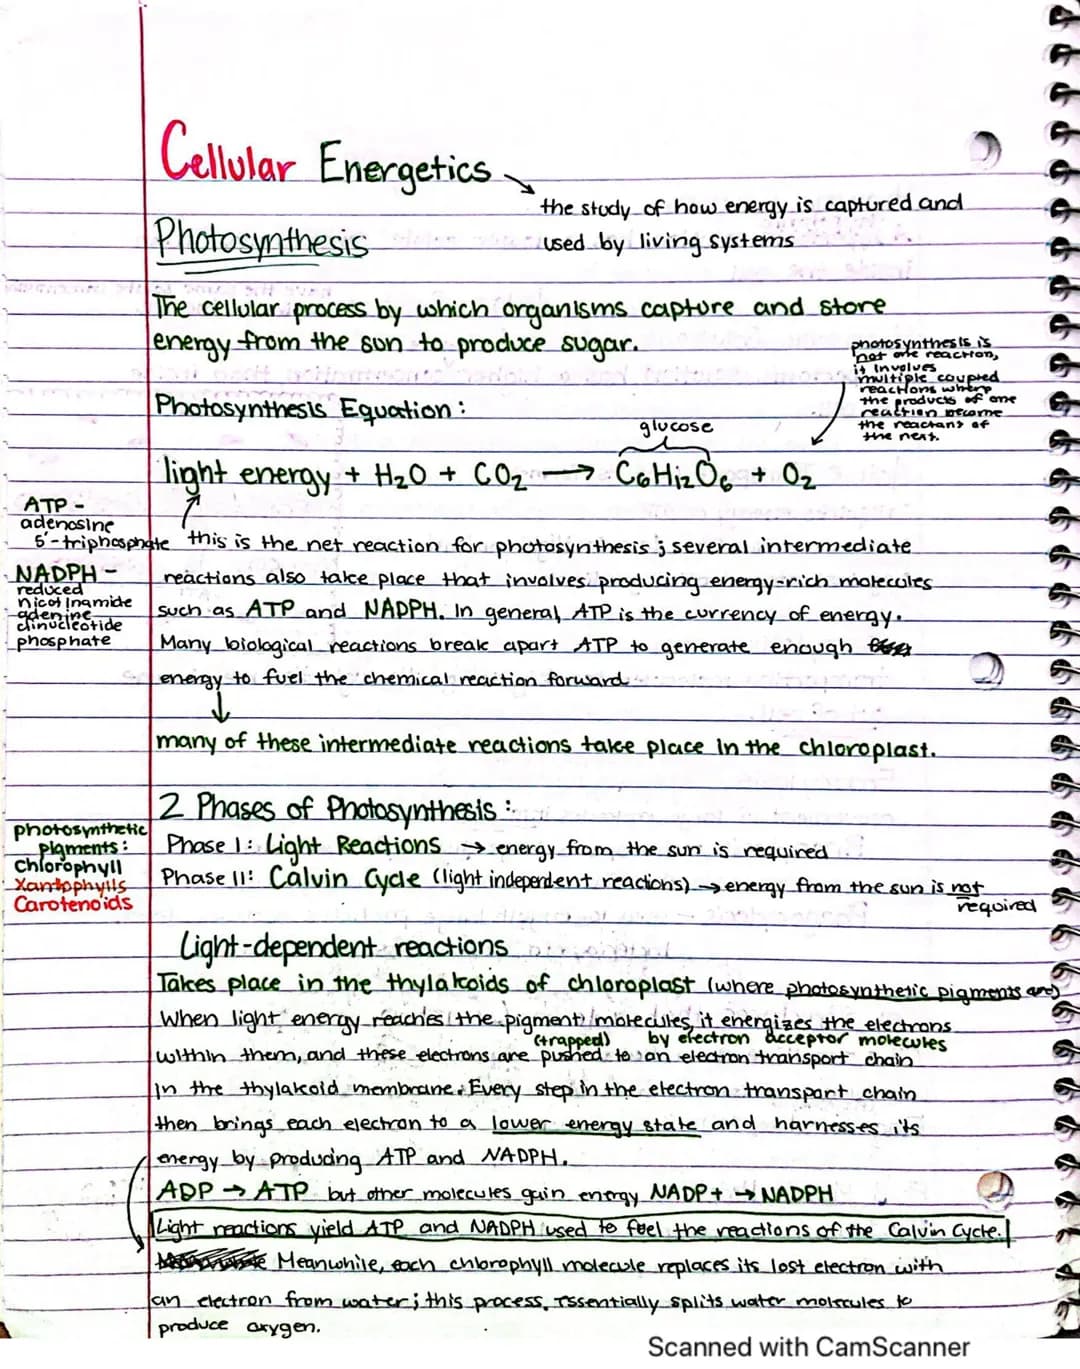 Cellular Energetics
the study of how energy is captured and
used by living systems
Photosynthesis
The cellular process by which organisms capture and store
energy from the sun to produce sugar.
photosynthesis is
not one reaction,
it involves
multiple coupled
reactions where
the products of one
reaction become
the reactants of
the next.
Photosynthesis Equation:
glucose
light energy + H₂O + CO₂ → C₆H₁₂O₆ + O₂
ATP -
adenosine
5'-triphosphate
NADPH -
reduced
nicotinamide
adenine
dinucleotide
phosphate
this is the net reaction for photosynthesis; several intermediate
reactions also take place that involves producing energy-rich molecules
such as ATP and NADPH. In general, ATP is the currency of energy.
Many biological reactions break apart ATP to generate enough
energy to fuel the chemical reaction forward
↓
many of these intermediate reactions take place in the chloroplast.
2 Phases of Photosynthesis:
photosynthetic
pigments:
Chlorophyll
Xantophylls
Carotenoids
Phase I: Light Reactions → energy from the sun is required
Phase II: Calvin Cycle (light independent reactions) → energy from the sun is not
required
Light-dependent reactions
Takes place in the thylakoids of chloroplast (where photosynthetic pigments are)
When light energy reaches the pigment molecules, it energizes the electrons
(trapped) by electron acceptor molecules
within them, and these electrons are pushed to an electron transport chain
in the thylakoid membrane. Every step in the electron transport chain
then brings each electron to a lower energy state and harnesses its
energy by producing ATP and NADPH.
ADP → ATP but other molecules gain energy NADP+ → NADPH
Light reactions yield ATP and NADPH used to fuel the reactions of the Calvin Cycle.
Meanwhile, each chlorophyll molecule replaces its lost electron with
an electron from water; this process, essentially splits water molecules to
produce oxygen.
Scanned with CamScanner